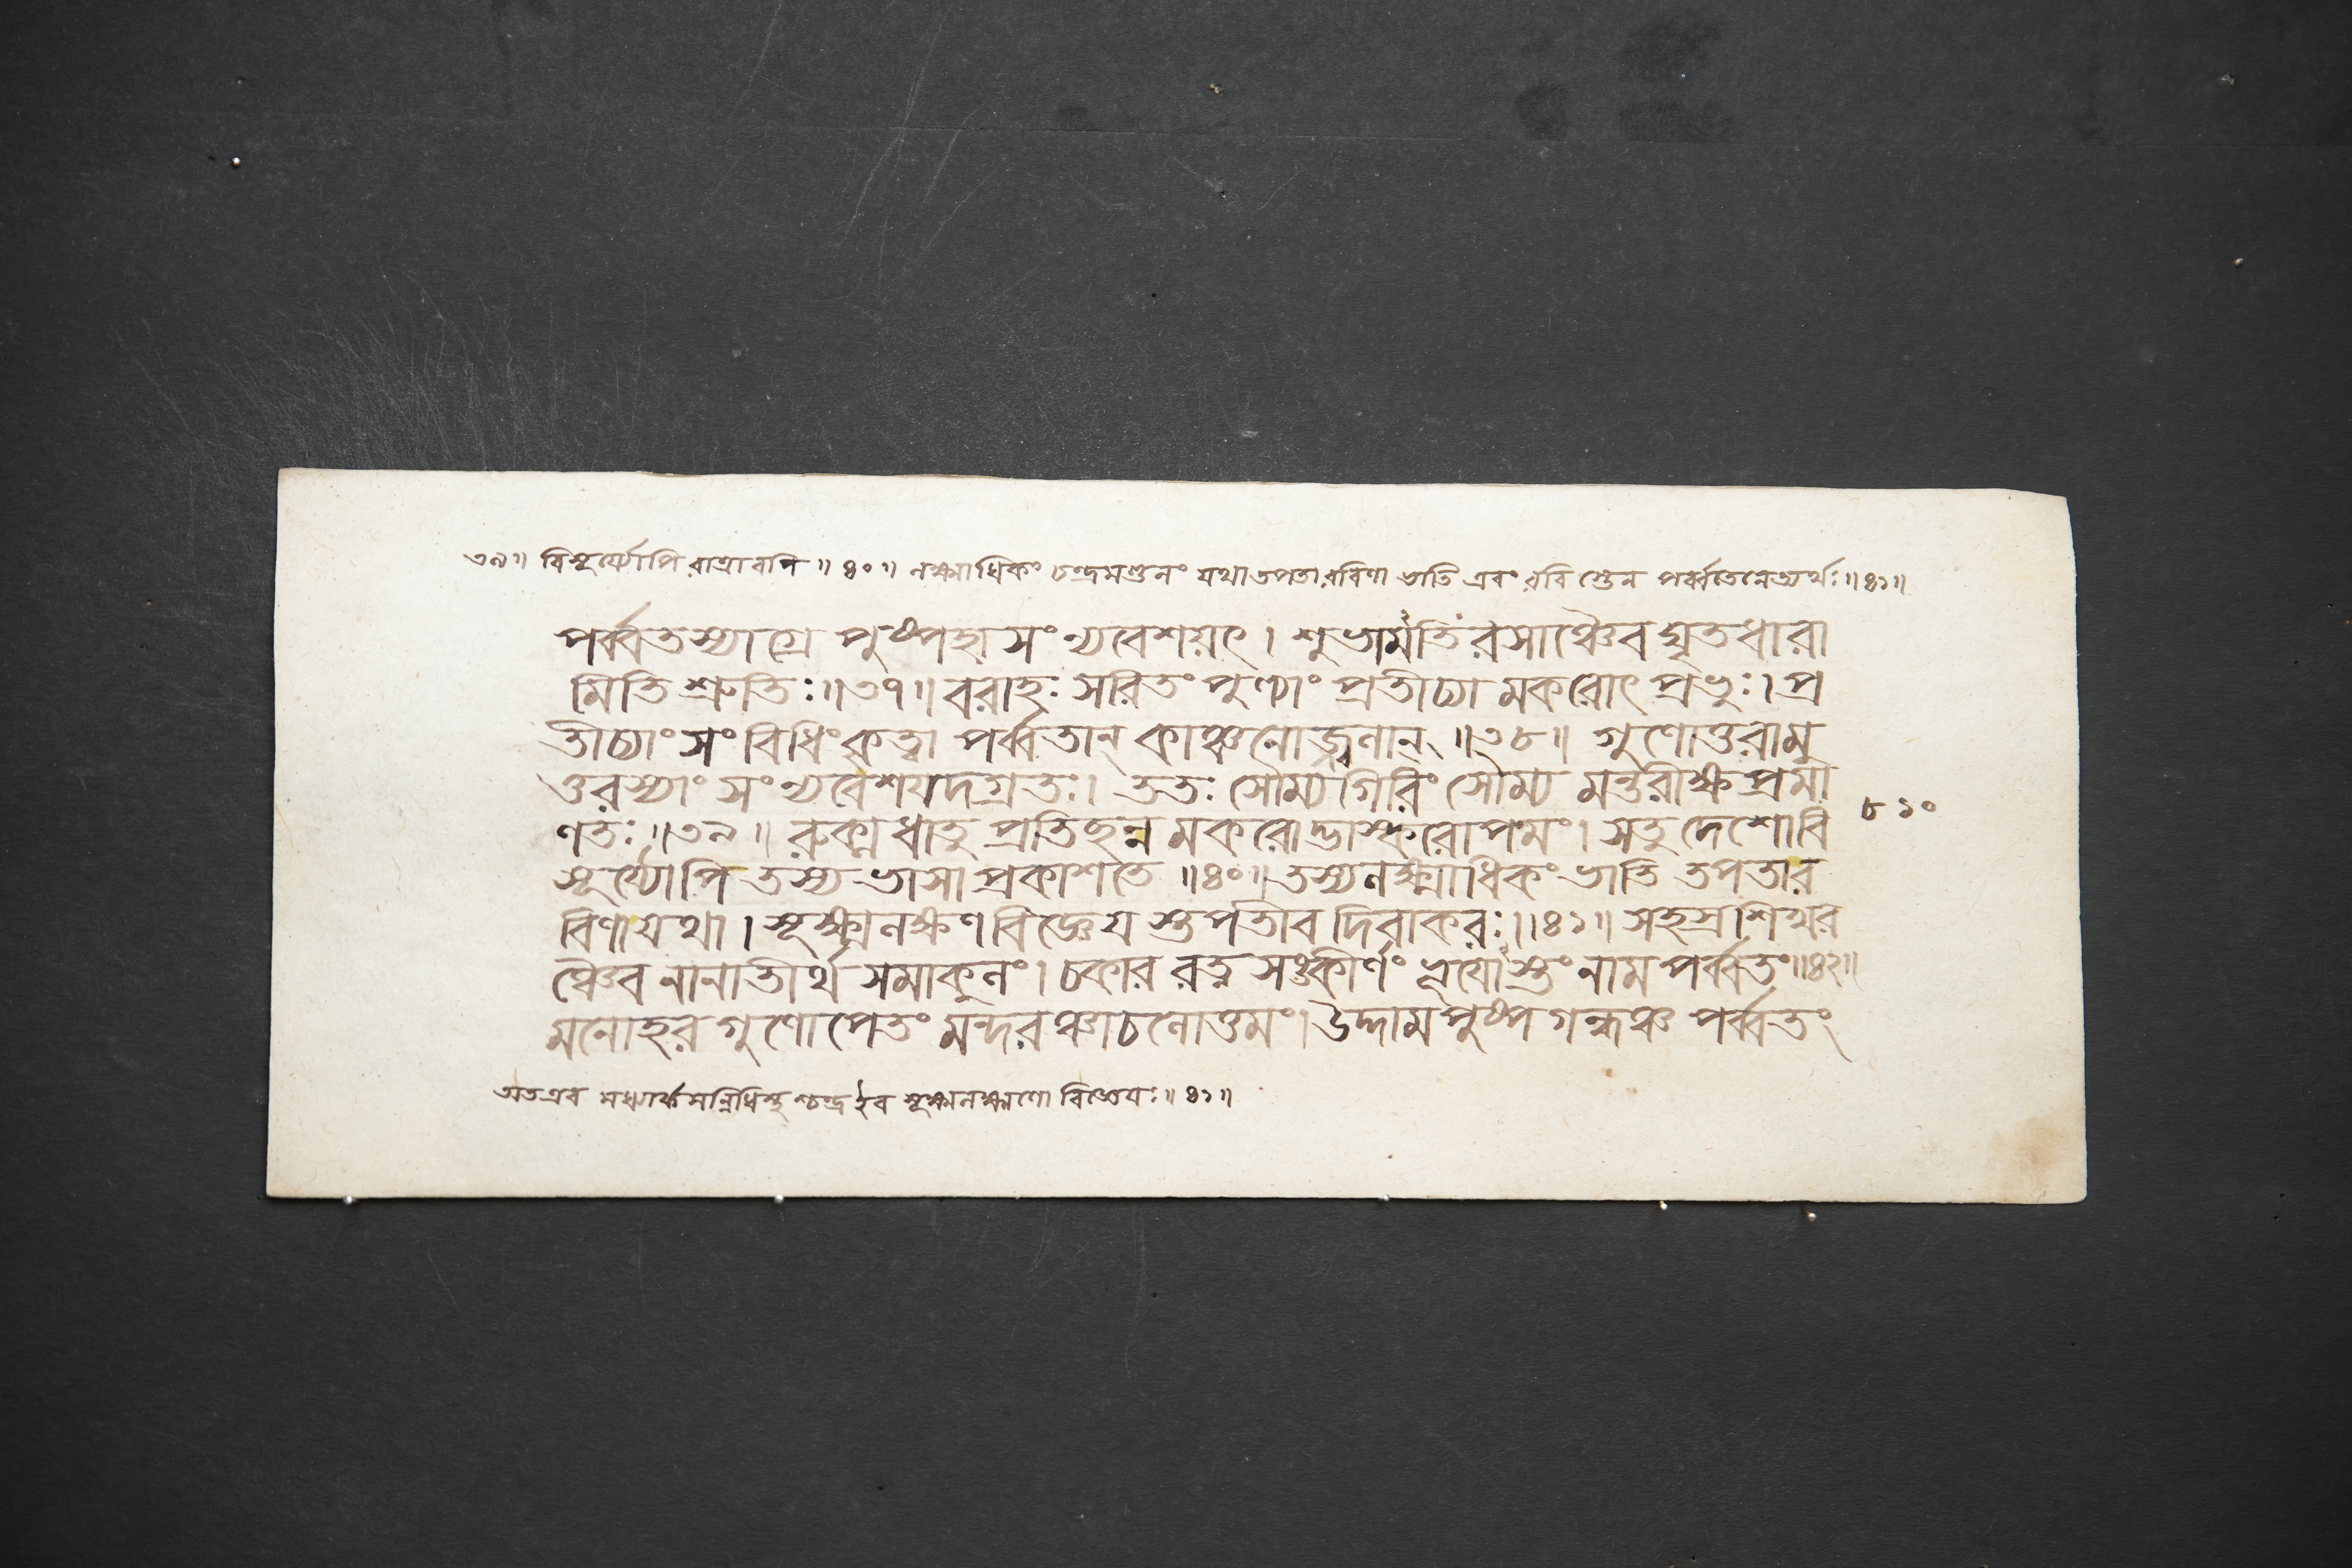 ৩৯॥ বিসূর্য্যোপি রাত্রাবপি ॥ ৪০ ॥ লক্ষ্ম্যাধিকং চন্দ্রমণ্ডলং যথা তপতা রবিণা ভাতি এবং রবি স্তেন পর্ব্বতেনেত্যর্থঃ ॥৪১॥
পর্ব্বতস্যাগ্রে পুষ্পহা সংন্যবেশয়ৎ। শুভামৰ্তিং রসাঞ্চৈব ঘৃতধারা
মিতি শ্রুতিঃ॥৩৭॥ বরাহঃ সরিতং পুণ্যাং প্রতীচ্যা মকরোৎ প্রভুঃ। প্র
তীচ্যাং সং বিধিং কৃত্বা পর্ব্বতান্ কাঞ্চনোজ্জ্বলান্ ॥৩৮॥ গুণোত্তরামু
ত্তরস্যাং সংন্যবেশযদগ্রতঃ। ততঃ সৌম্যগিরিং সৌম্য মন্তরীক্ষ প্রমা
ণতঃ ॥৩৯॥ রুক্মধাতু প্রতিছন্ন মকরোদ্ভাস্করোপমং। সতু দেশোবি
৮১০
সূর্য্যোপি তস্য ভাসা প্রকাশতে ॥৪০॥ তস্যলক্ষ্ম্যাধিকং ভাতি তপতার
বিণা যথা। সূক্ষ্মলক্ষণ বিজ্ঞেয স্তপতীব দিবাকরঃ॥৪১॥ সহস্রশিখর
ঞ্চৈব নানাতীর্থ সমাকুলং। চকার রত্ন সঙ্কীর্ণং নাম পর্ব্বতং॥৪২॥
মনোহর গুণোপেতং মন্দরঞ্চাচলোত্তমং। উদ্দাম পুষ্প গন্ধঞ্চ পর্ব্বতং
অতএব মধ্যার্ক সন্নিধিস্থ শ্চন্দ্র ইব সূক্ষ্মলক্ষণো বিজ্ঞেযঃ॥ ৪১॥